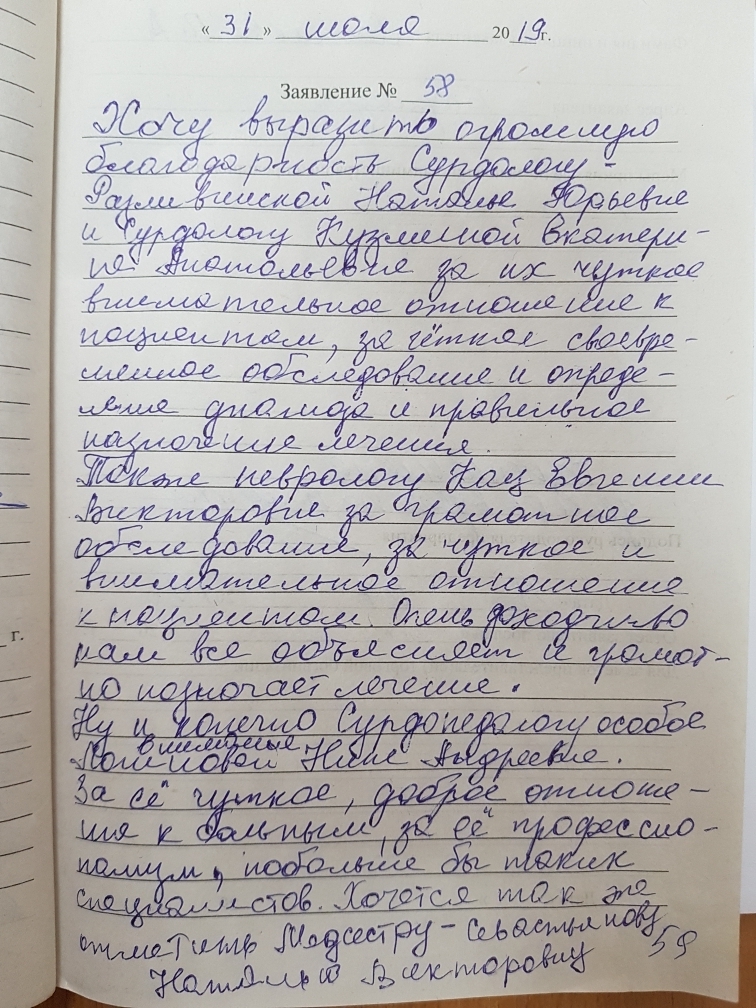 « 31 » июля 2019г.
Заявление № 58
Хочу выразить огромную
благодарность Сурдологу -
Разливинской Наталье Юрьевне
и Сурдологу Кузьминой Екатери-
не Анатольевне за их чуткое
внимательное отношение к
пациентам, за чёткое своевре-
менное обследование и опреде-
ление диагноза и правильное
назначение лечения.
Также неврологу Кац Евгении
Викторовне за грамотное
обследование, за чуткое и
внимательное отношение
к пациентам. Очень доходчиво
нам все объясняет и грамот-
но назначает лечение.
Ну и конечно Сурдопедагогу особое
внимание
Нине Андреевне.
За её чуткое, доброе отноше-
ние к больным, за её професcио-
нализм, побольше бы таких
специалистов. Хочется так же
отметить Медсестру - Севастьянову
Наталью Викторовну
59
г.